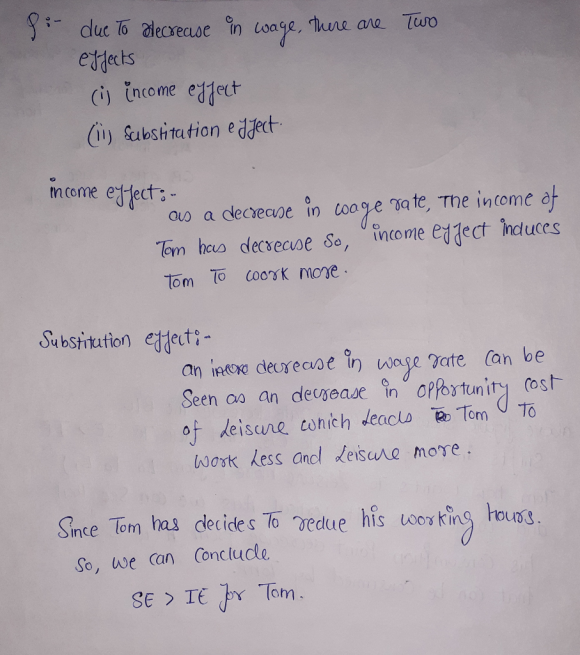 f :- due To decrease in wage, there are Two
effects
(i) income effect
(ii) substitation effect.
income effect:-
as a decrease in wage rate, The income of
Tom has decrecise so, income effect induces
Tom To work more.
Substitution effect:-
an decrease in wage rate can be
Seen as an decrease in opportunity cost
of Leisure which Leads Tom To
work Less and Leisure more.
Since Tom has decides To redue his working hours.
So, we can Conclude
SE > IE for Tom.